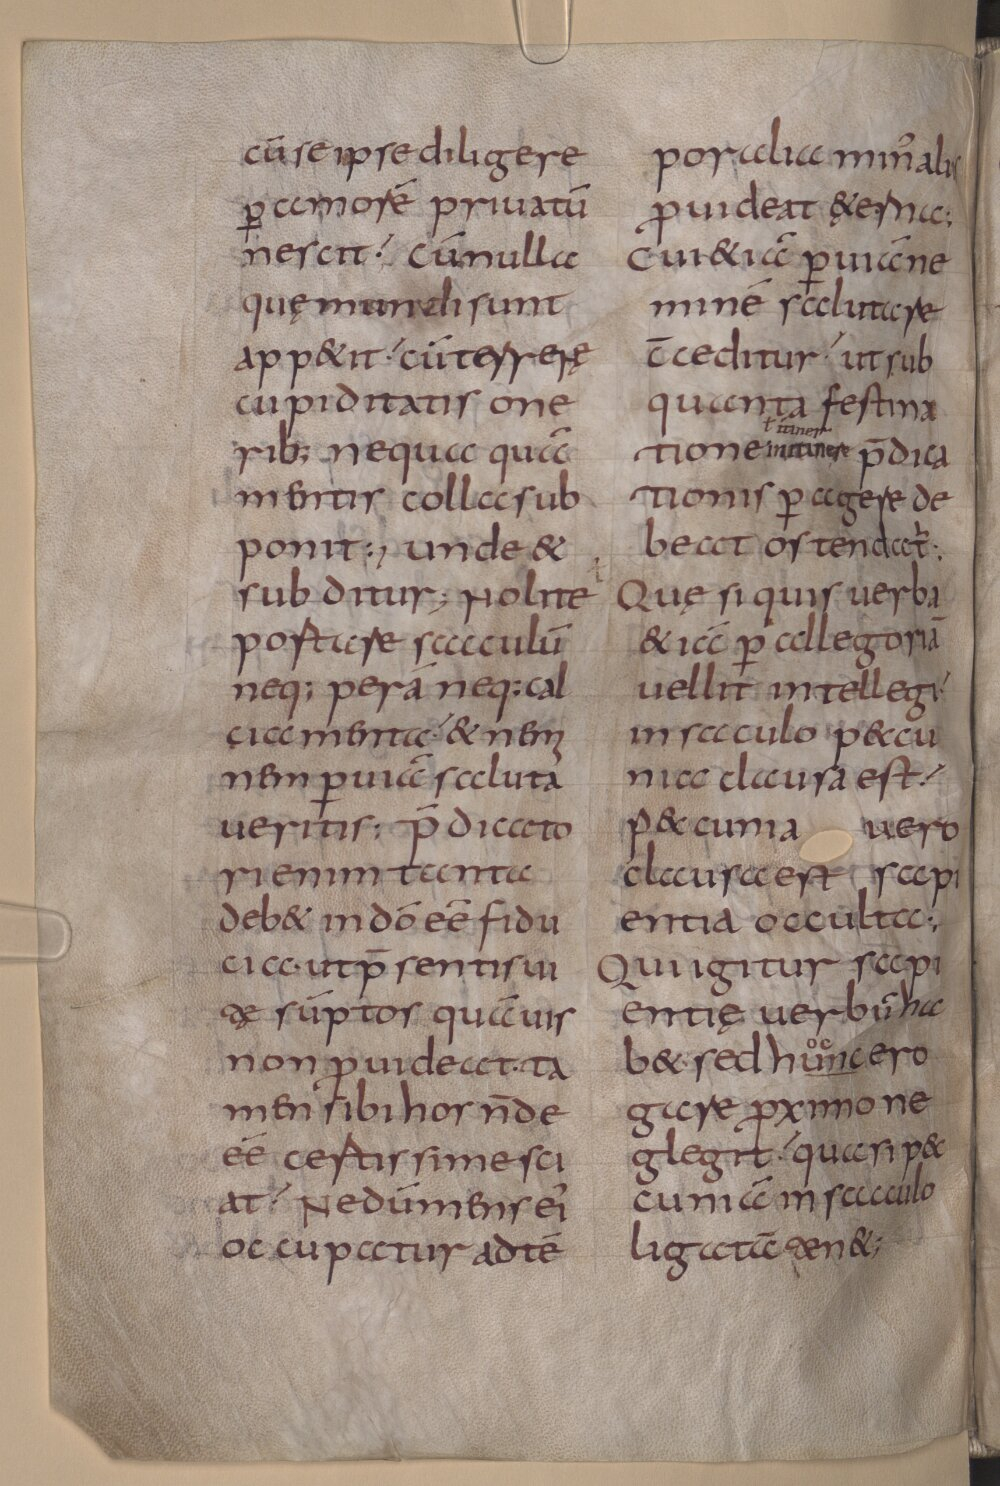 cū se ipse diligere
ꝑ amorē priuatū
nescit? Cū nulla
quę mundi sunt
app&it? cū terrerę
cupiditatis one
rib; nequa quā
mentis colla sub
ponit:, unde &
subditur; Nolite
portare sacculū
neq; perā neq; cal
ciamenta? & nem̄
nem ꝑ uiā saluta
ueritis; p̄dicato
ri enim tanta
deb& in dō eē fidu
cia. ut p̄sentis ui
dę sūptos quāuis
non ꝓuideat. ta
men sibi hos n̄ de
eē certissime sci
at? Ne dū mens ei'
occupatur ad tē
poralia min' alis
ꝓuideat &ęterna;
Cui & iā ꝑ uiā ne
minē salutare
c̄ceditur? ut sub
quanta festina
tione in itinere p̄dica
ł itiner
tionis ꝑagere de
beat ostendat̄;
Quę si quis uerba
& iā ꝑ allegoriā
uellit intellegi?
in sacculo p&cu
nia clausa est?
p&cunia uero
clausa est sapi
entia occulta;
Qui igitur sapi
entię uerbū ha
b&. sed hunc ero
gare ꝓximo ne
glegit? quasi p&
cuniā in sacculo
ligatā ten&;